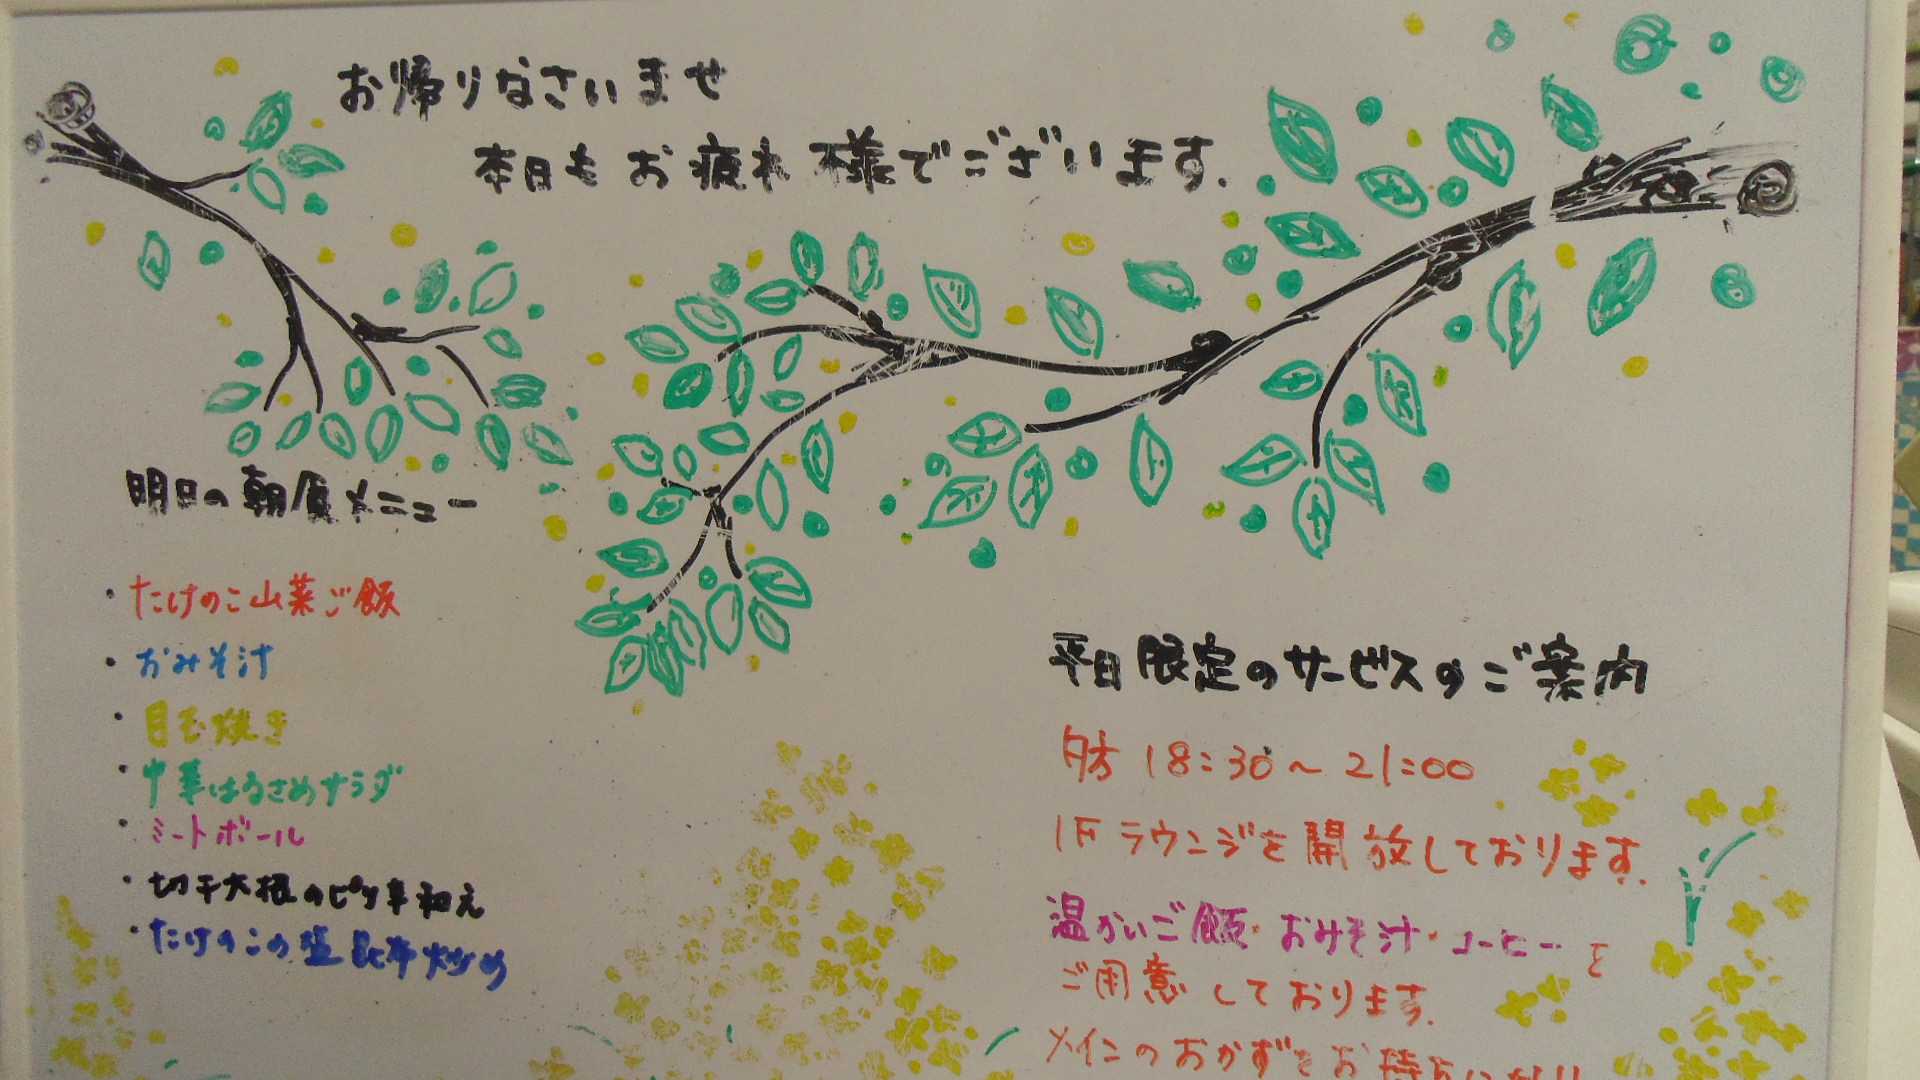 お帰りなさいませ
本日もお疲れ様でございます.
明日の朝食メニュー
・たけのこ山菜ご飯
・おみそ汁
・目玉焼き
・中華はるさめサラダ
・ミートボール
・切干大根のピリ辛和え
・たけのこの塩昆布炒め
平日限定のサービスのご案内
夕方 18:30～21:00
1Fラウンジを開放しております.
温かいご飯・おみそ汁・コーヒーを
ご用意しております.
メインのおかずをお持ちになり